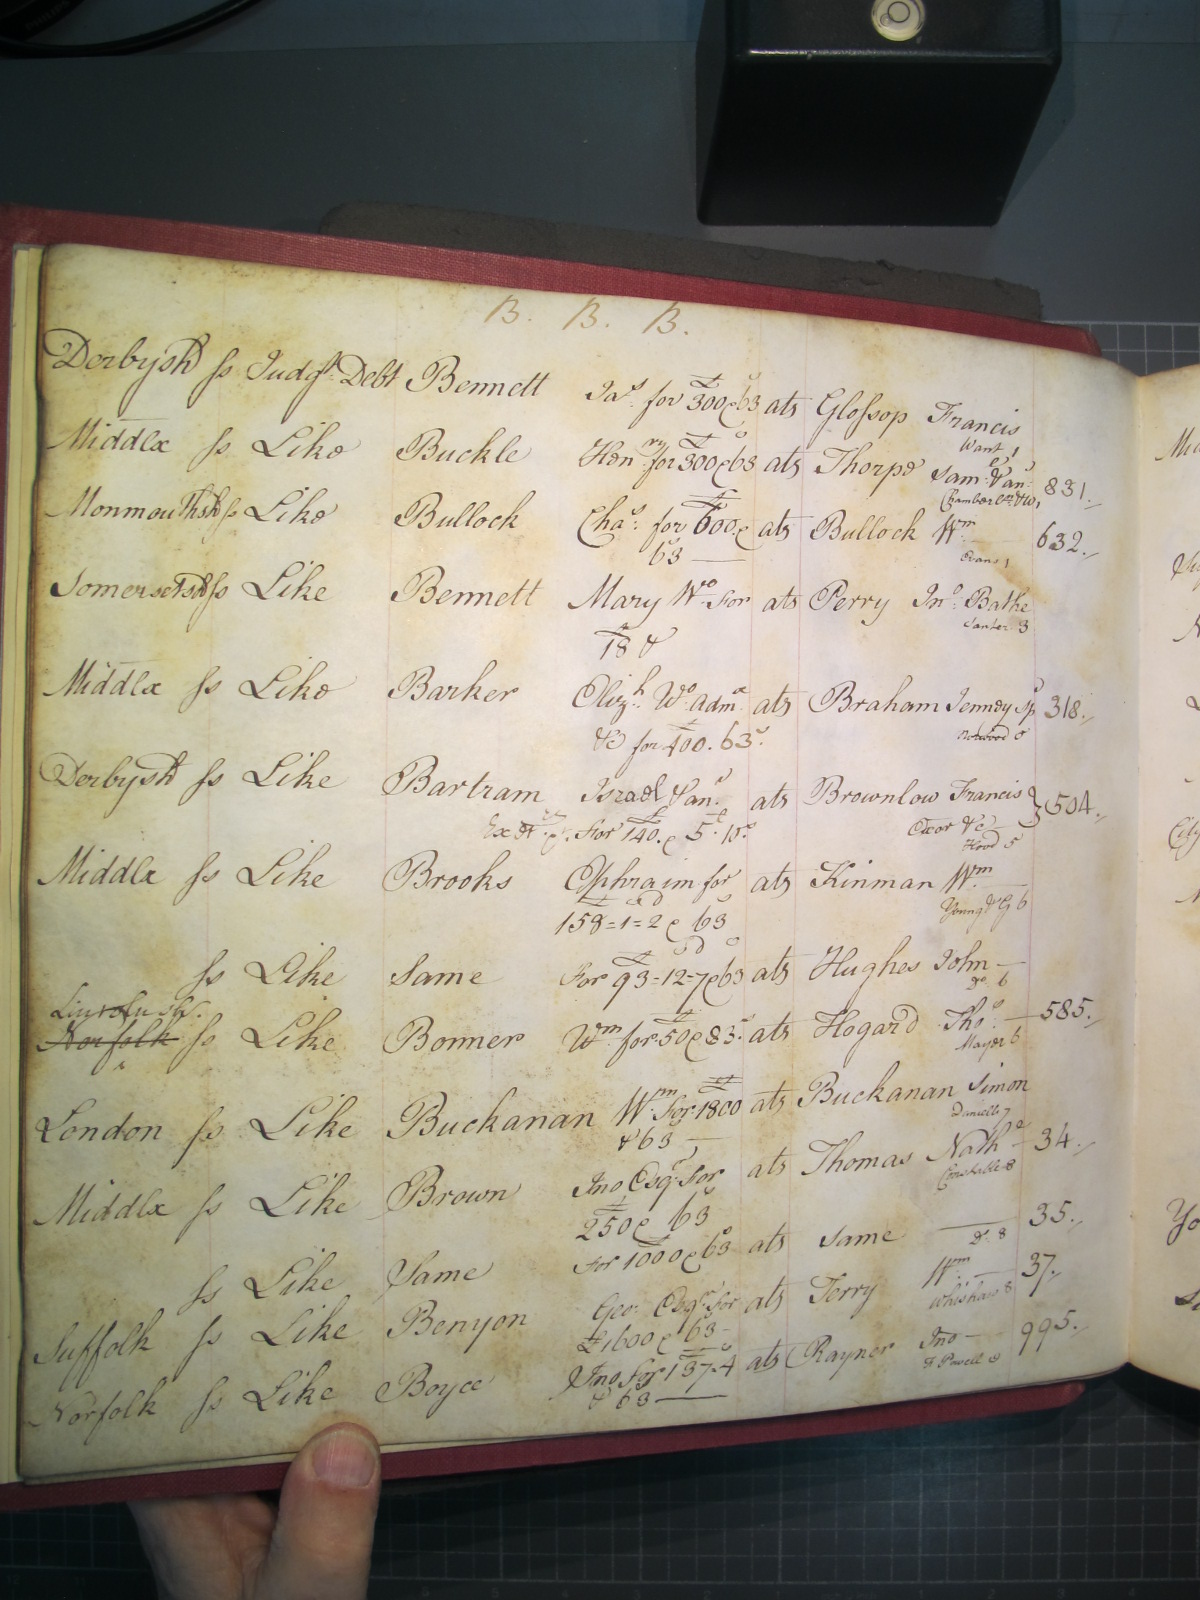 B. B. B.
Derbysh ss Judgt Debt Bennett Jas. for £300 & 63s ats Glossop Francis
Want 1
Middlx ss Like Buckle Henry for £300 & 63s ats Thorpe Saml. & an.r 831.
Chamberln & W 1
Monmouthsh ss Like Bullock Chas. for £600 & ats Bullock Wm 632.
63 — Evans 1
Somersetsh ss Like Bennett Mary Wo. for ats Perry Jno. Bathe
£18 & Santer 3
Middlx ss Like Barker Elizh. Wo. Adma ats Braham Jenney Sp 318.
&c for £400. 63s. Norwood 5
Derbysh ss Like Bartram Israel & an.r ats Brownlow Francis 504.
Exrs &c. for £140. & 5£. 10s. Exor &c
Hood 5
Middlx ss Like Brooks Ephraim for ats Kinman Wm
£158=1=2 & 63s Young & G 6
ss Like Same for £93=12=7 & 63s ats Hughes John —
Do. 6
Lincolnsh.
Norfolk ss Like Bonner Wm. for 50 & 83s. ats Hogard Thos. — 585.
Mayer 6
London ss Like Buchanan Wm. for £1800 ats Buckanan Simon
& 63 — Daniell 7
Middlx ss Like Brown Jno Esqr. for ats Thomas Nathl 34.
£250 & 63s Constable 8
ss Like Same for £1000 & 63s ats Same — 35.
Do. 8
Suffolk ss Like Benyon Geo. Esqr. for ats Terry Wm 37.
£1600 & 63 — Whishaw 8
Norfolk ss Like Boyce Jno for £137=4 ats Rayner Jno — 995.
& 63 — F Powell 8